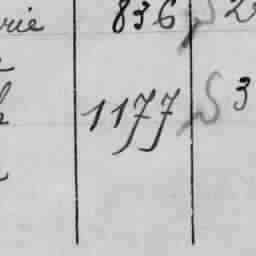 rie 836 S 2
1177 S 3